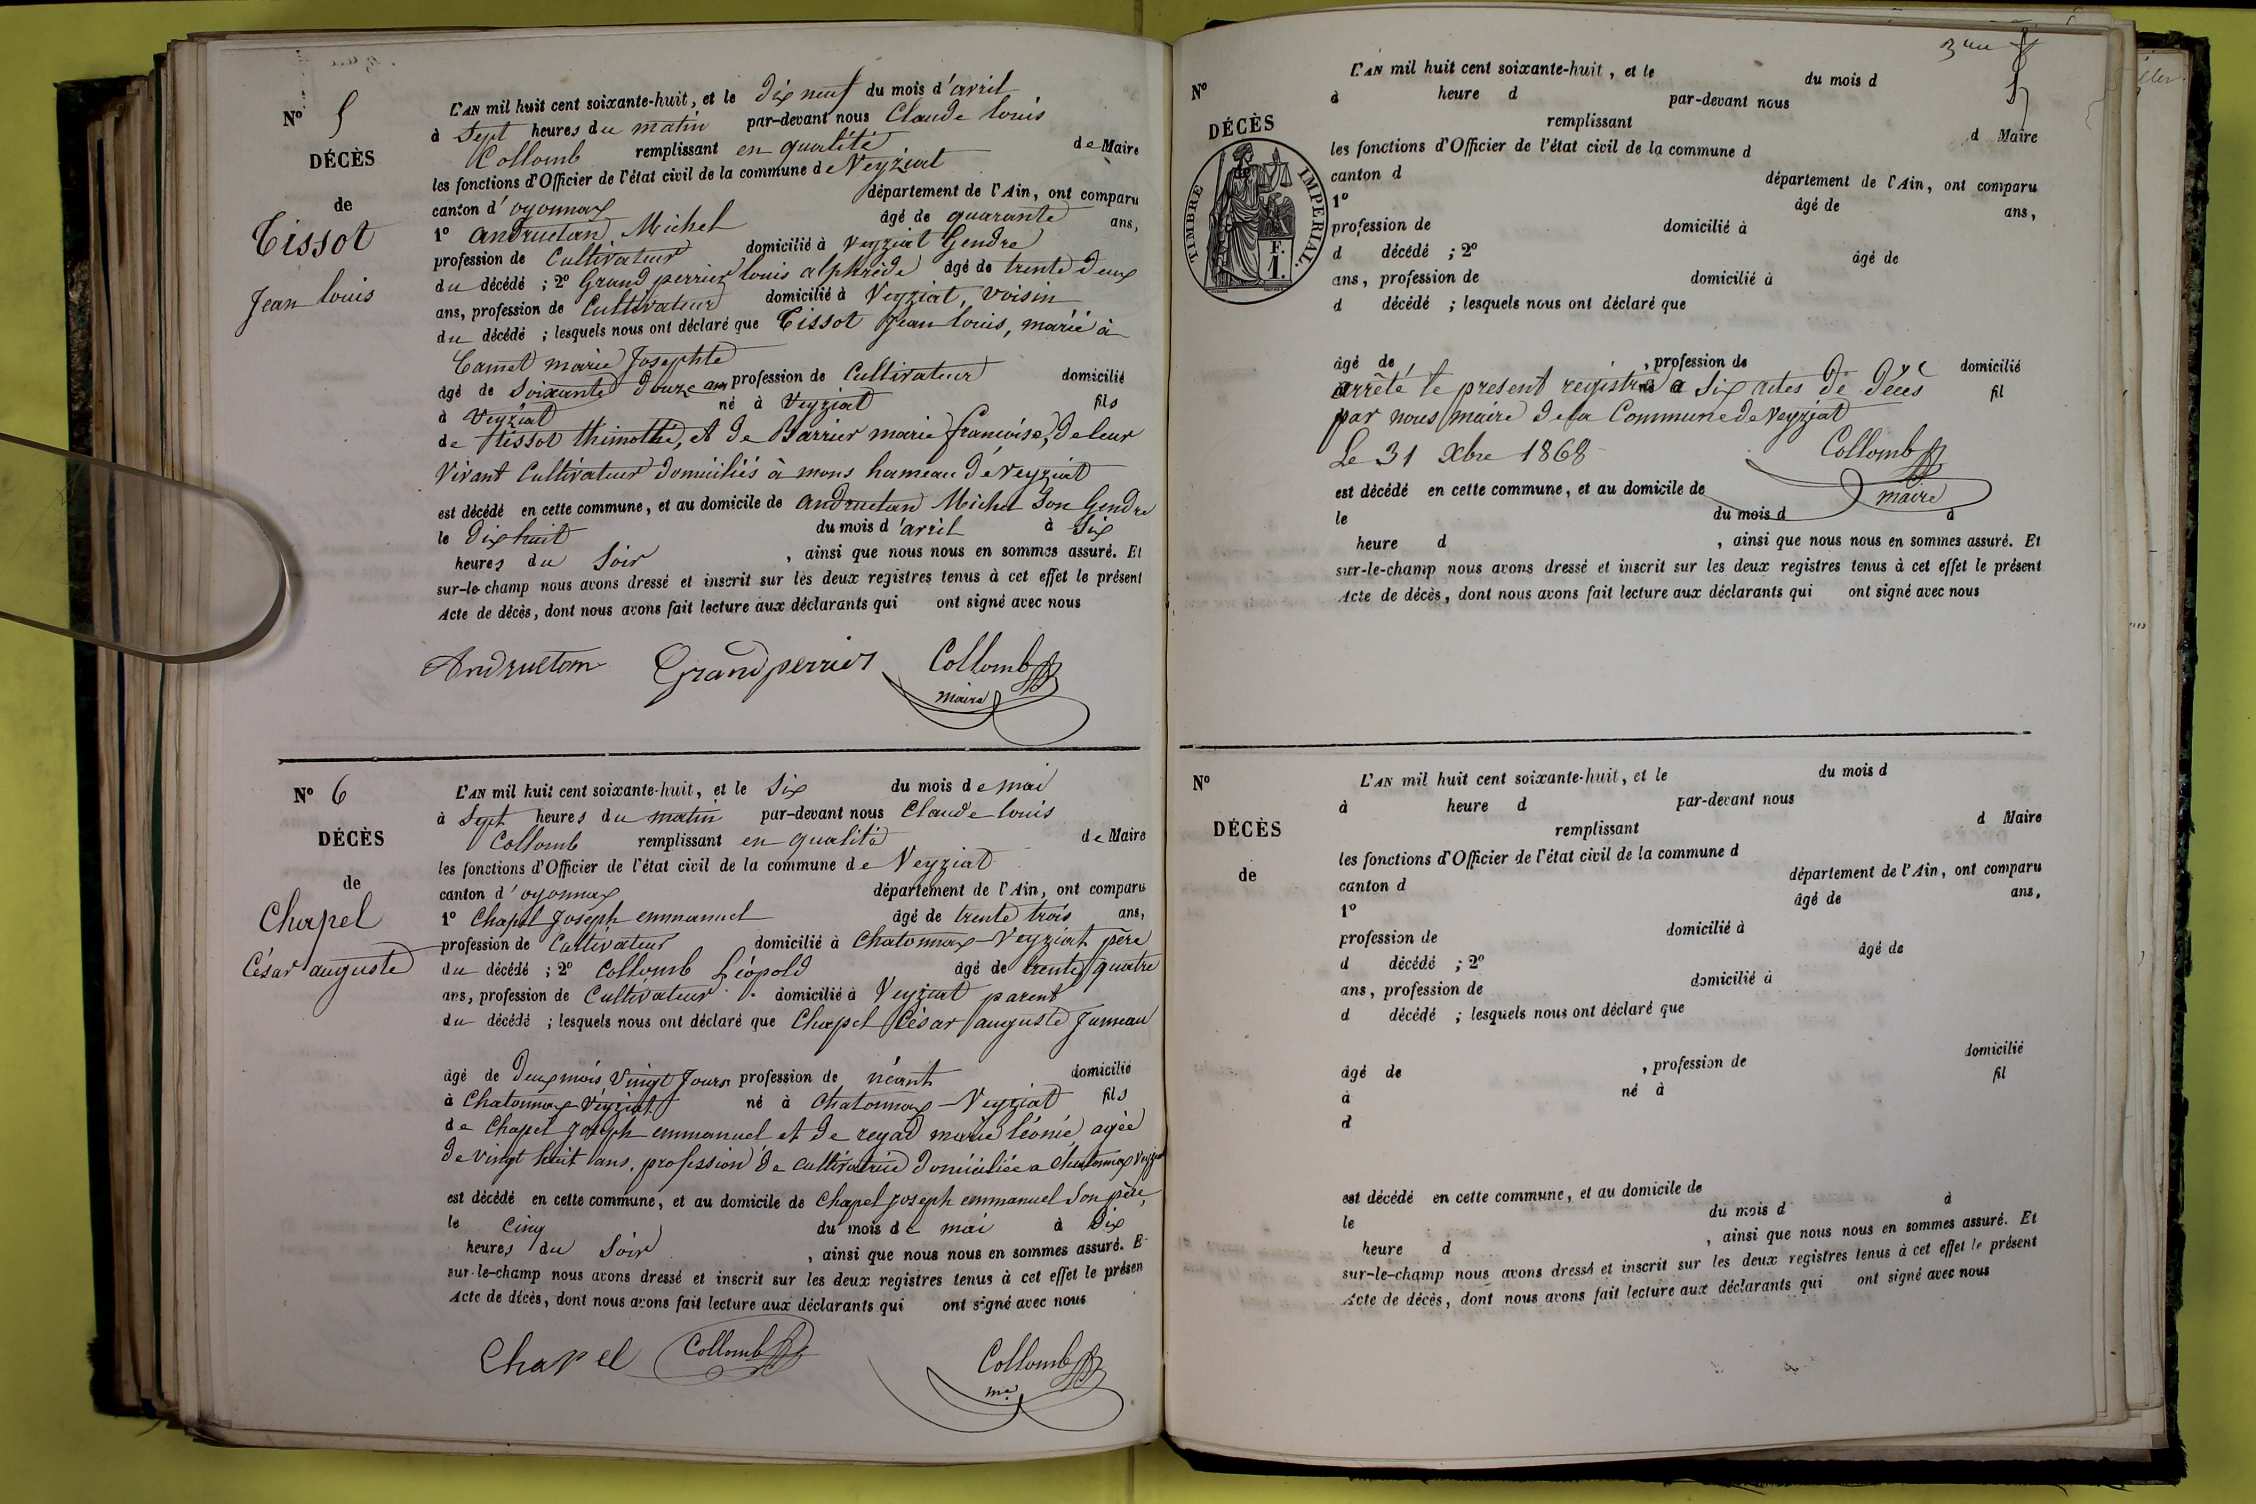 N° 5
DÉCÈS
de
Tissot
Jean louis
L'AN mil huit cent soixante-huit, et le dix neuf du mois d'avril
à Sept heures du matin par-devant nous Claude louis
Collomb remplissant en qualité de Maire
les fonctions d'Officier de l'état civil de la commune de Veyziat
canton d'oyonnax département de l'Ain, ont comparu
1° andruetan Michel âgé de quarante ans,
profession de Cultivateur domicilié à veyziat Gendre
du décédé ; 2° Grand perrier louis alphrède âgé de trente deux
ans, profession de Cultivateur domicilié à Veyziat, voisin
du décédé ; lesquels nous ont déclaré que Tissot Jean louis, marié à
marie Josephte
âgé de Soixante douze ans profession de Cultivateur domicilié
à Veyziat né à Veyziat fils
de tissot thimothé, et de Barrier marie francoise, de leur
Vivant Cultivateur domiciliés à mons hameau de veyziat
est décédé en cette commune, et au domicile de andruetan Michel son Gendre
le Dix huit du mois d'avril à Six
heures du Soir, ainsi que nous nous en sommes assuré. Et
sur-le-champ nous avons dressé et inscrit sur les deux registres tenus à cet effet le présent
Acte de décès, dont nous avons fait lecture aux déclarants qui ont signé avec nous
Andruetan Grandperrier Collomb
maire
N° 6
DÉCÈS
de
Chapel
César auguste
L'AN mil huit cent soixante-huit, et le Six du mois de mai
à Sept heures du matin par-devant nous Claude louis
Collomb remplissant en qualité de Maire
les fonctions d'Officier de l'état civil de la commune de Veyziat
canton d'oyonnax département de l'Ain, ont comparu
1° Chapel Joseph emmanuel âgé de trente trois ans,
profession de Cultivateur domicilié à Chatonnax-Veyziat père
du décédé ; 2° Collomb Léopold âgé de trente quatre
ans, profession de Cultivateur domicilié à Veyziat parent
du décédé ; lesquels nous ont déclaré que Chapel César auguste Jumeau
âgé de deux mois vingt Jours profession de néant domicilié
à Chatonnax Veyziat né à Chatonnax-Veyziat fils
de Chapel Joseph emmanuel et de regad marie léonie agée
de vingt huit ans, profession de cultivatrice domiciliée a Chatonnax Veyziat
est décédé en cette commune, et au domicile de Chapel Joseph emmanuel Son père,
le Cinq du mois de mai à Dix
heures du Soir, ainsi que nous nous en sommes assuré. E
sur-le-champ nous avons dressé et inscrit sur les deux registres tenus à cet effet le présen
Acte de décès, dont nous avons fait lecture aux déclarants qui ont signé avec nous
Chapel Collomb Collomb
N°
DÉCÈS
de
TIMBRE IMPERIAL.
1 F.
L'AN mil huit cent soixante-huit, et le du mois d
à heure d par-devant nous
remplissant d Maire
les fonctions d'Officier de l'état civil de la commune d
canton d département de l'Ain, ont comparu
1° âgé de ans,
profession de domicilié à
d décédé ; 2° âgé de
ans, profession de domicilié à
d décédé ; lesquels nous ont déclaré que
âgé de , profession de domicilié
arrêté le present registre a Six actes de décès fil
par nous maire de la Commune de Veyziat
Le 31 Xbre 1868 Collomb
est décédé en cette commune, et au domicile de maire
le du mois d à
heure d , ainsi que nous nous en sommes assuré. Et
sur-le-champ nous avons dressé et inscrit sur les deux registres tenus à cet effet le présent
Acte de décès, dont nous avons fait lecture aux déclarants qui ont signé avec nous
N°
DÉCÈS
de
L'AN mil huit cent soixante-huit, et le du mois d
à heure d par-devant nous
remplissant d Maire
les fonctions d'Officier de l'état civil de la commune d
canton d département de l'Ain, ont comparu
1° âgé de ans,
profession de domicilié à
d décédé ; 2° âgé de
ans, profession de domicilié à
d décédé ; lesquels nous ont déclaré que
âgé de , profession de domicilié
à né à fil
d
est décédé en cette commune, et au domicile de
le du mois d à
heure d , ainsi que nous nous en sommes assuré. Et
sur-le-champ nous avons dressé et inscrit sur les deux registres tenus à cet effet le présent
Acte de décès, dont nous avons fait lecture aux déclarants qui ont signé avec nous